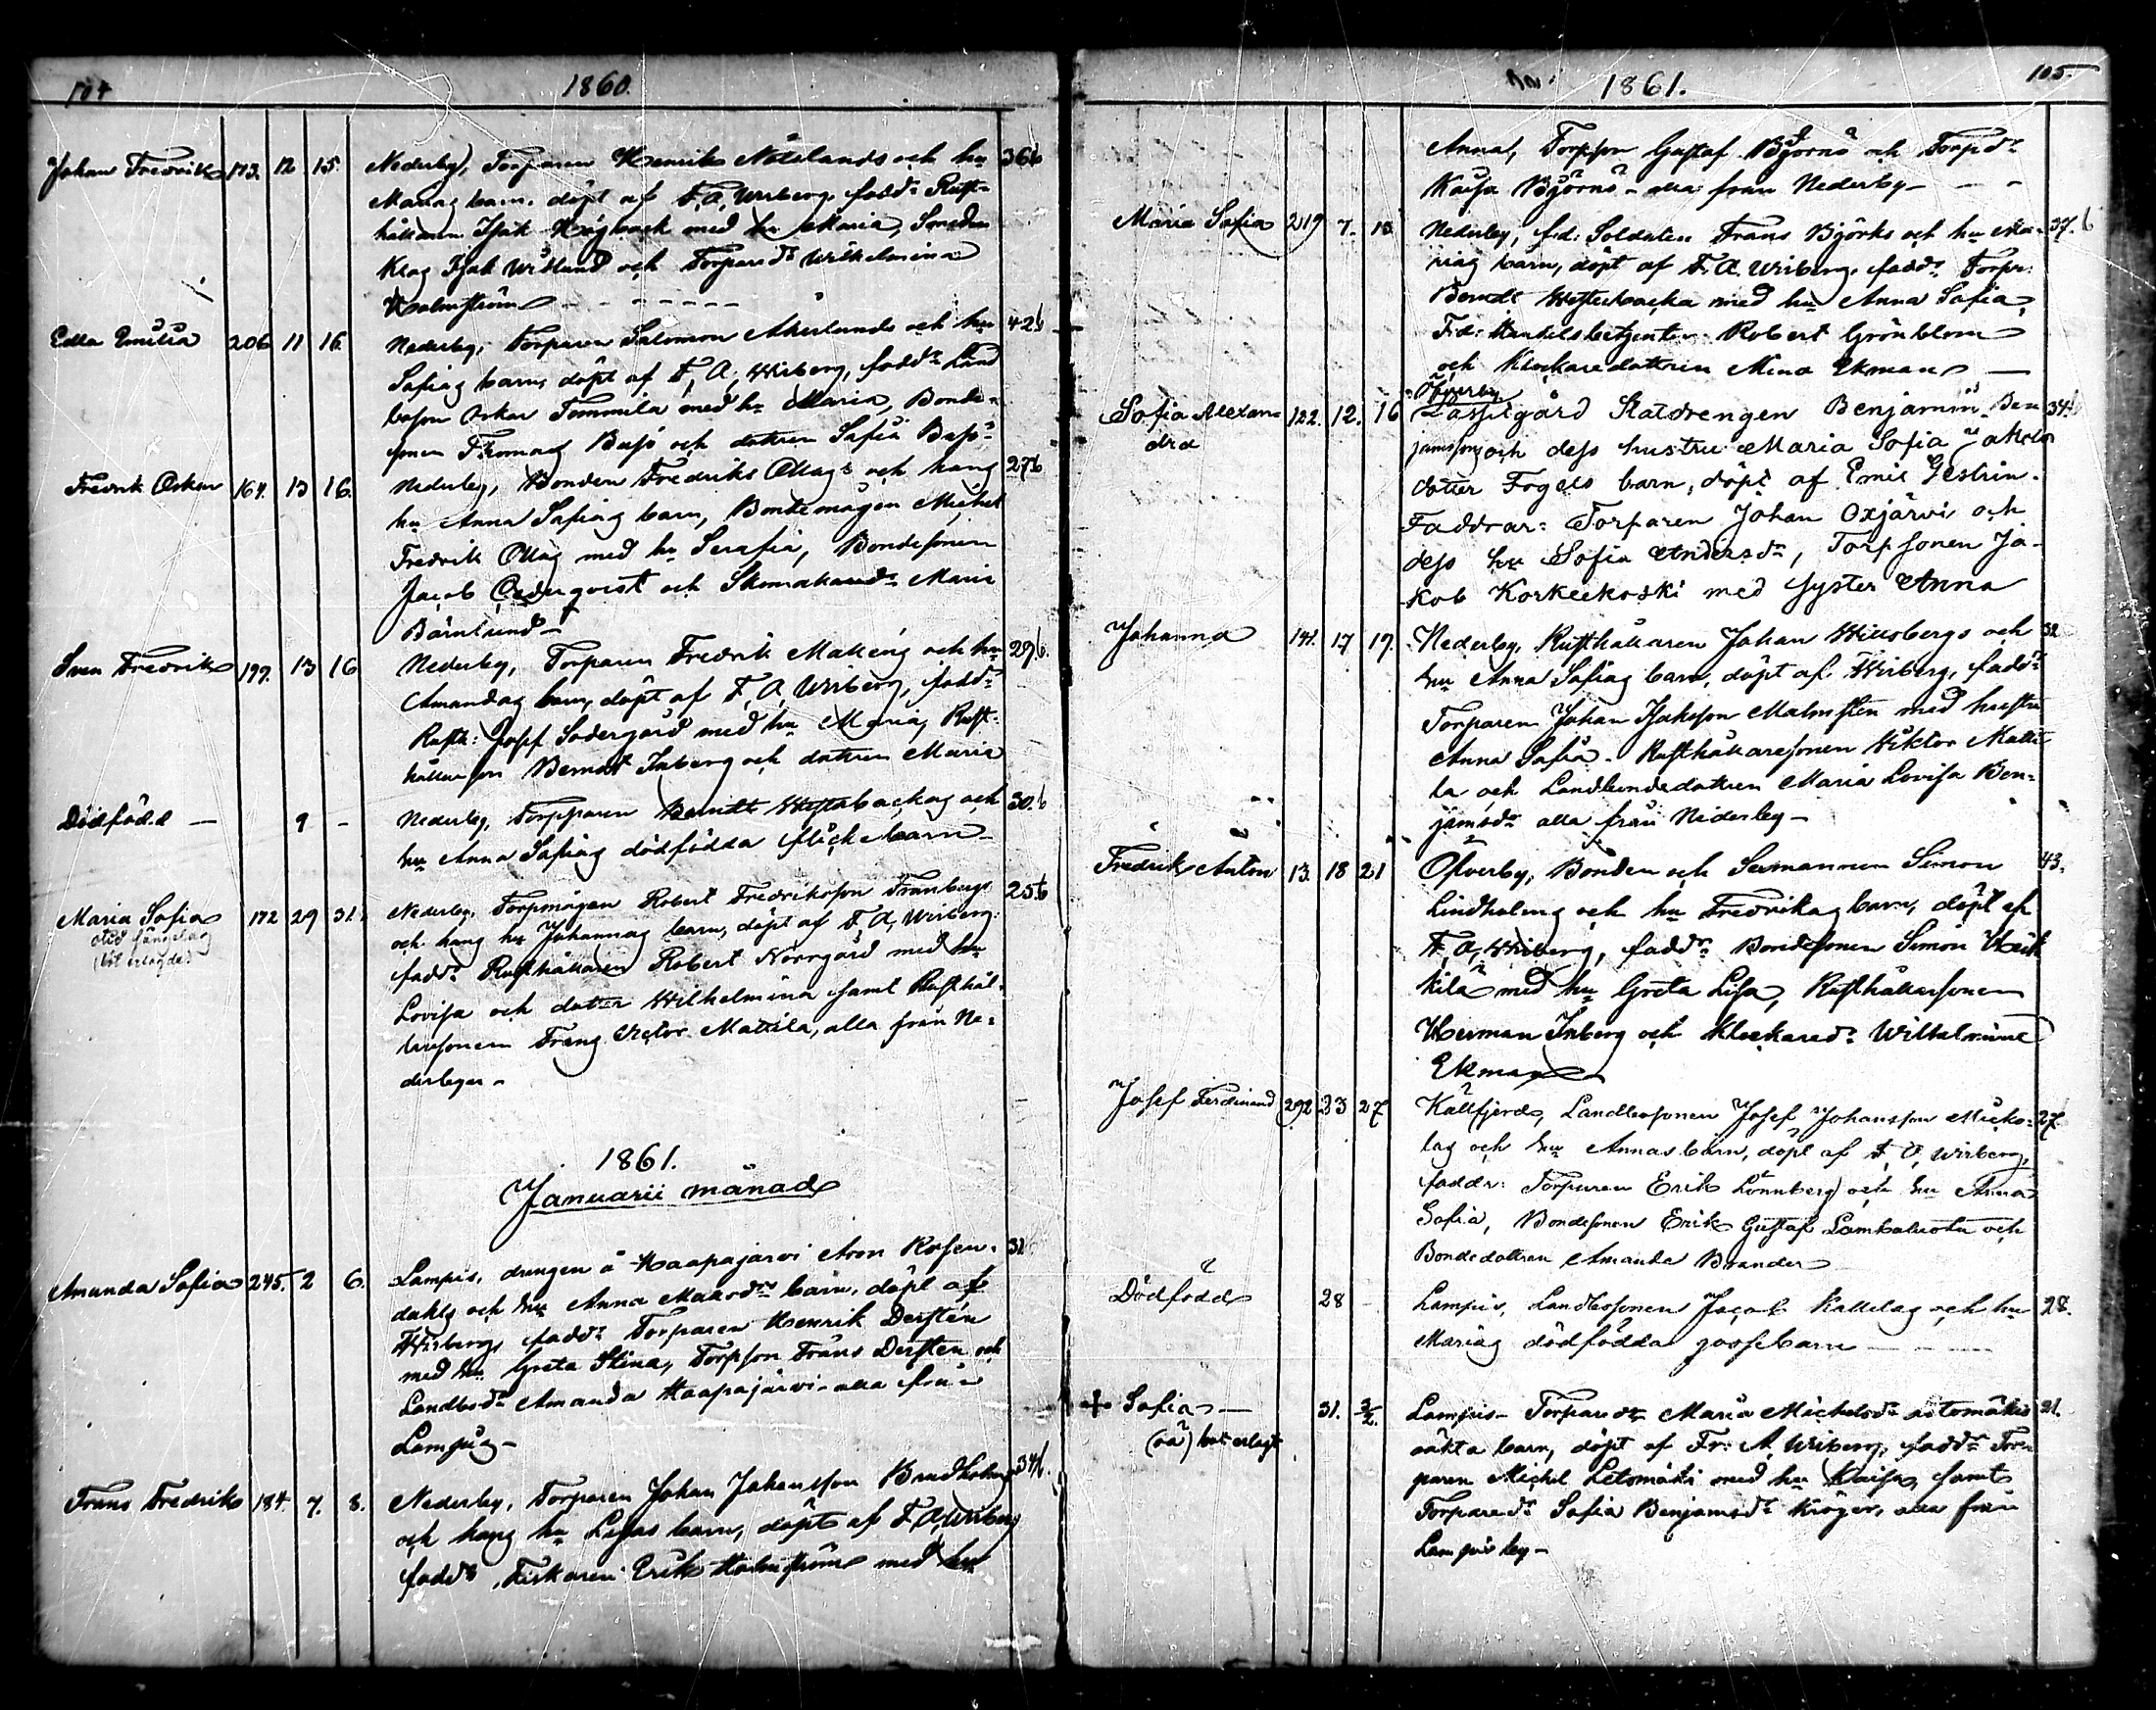 104
1860.
Johan Fredrik 173. 12 15. Nederby, Torparen Henrik Nötelunds och hu 36b
Marias barn, döpt af F. A. Wirberg, faddr Rust-
hållaren Isak Högback med hu Maria,
Isak Witlund och Torpared: Wilhelmina
Holmström
Edla Emilia 206 11 16. Nederby, Torparen Salomon Åkerlunds och hu 42b
Sofias barn, döpt af F. A. Wirberg, faddr Land
boson Oskar Tommila med hu Maria, Bonde-
sonen Thomas Basö och dottren Sofia Basö
Fredrik Oskar 164. 13 16. Nederby, Bonden Fredriks och hans 27b
hu Anna Sofias barn, Bondemågen Michel
Fredrik med hu Serafia, Bondesonen
Jacob Cederqvist och Skomakared: Maria
Bärnlund
Sven Fredrik 199. 13 16 Nederby, Torparen Fredrik Malléns och hu 29b.
Amandas barn, döpt af F. A. Wirberg, faddr
Rusth: Josef Södergård med hu Maria, Rust-
hållarson Berndt Inberg och dottren Maria
Dödfödd — 9 - Nederby, Torparen Berndt Westabackas och 30.b
hu Anna Sofias dödfödda flickebarn
Maria Sofia 172 29 31. Nederby, Torpmågen Robert Fredriksson Franbergs 25b
och hans hu Johannas barn, döpt af F. A. Wirberg.
faddr Rusthållaren Robert Norrgård med hu
Lovisa och dotter Wilhelmina samt Rusthål-
laresonen Frans Victor Mattila, alla från Ne-
derby
1861.
Januarii månad
Amanda Sofia 245. 2 6. Lampis, drengen å Haapajärvi Aron Rosen- 31
dahls och hu Anna Maria barn, döpt af
Wirberg, faddr Torparen Henrik Dersten
med hu Greta Stina, Torpson Frans Dersten och
Landbod: Amanda Haapajärvi alla från
Lampis
Frans Fredrik 184. 7. 8. Nederby, Torparen Johan Johansson Brudholms 34b.
och hans hu Lisas barn, döpt af F. A. Wirberg
faddr Fiskaren Erik Holmström med hu
1861. 105.
Anna, Torpson Gustaf Björns och Torpdr
Kaisa Björns alla från Nederby
Maria Sofia 219 7. 10. Nederby, f.d. Soldaten Frans Björks och hu Ma- 37.b
rias barn, döpt af F. A. Wirberg, faddr Torpr:
Berndt Westerbacka med hu Anna Sofia,
F.d. Handelsbetjenten Robert Grönblom
och Klockaredottren Mina Ekman
Öfverby
Sofia Alexan- 122. 12. 16 Lassfelgård Statdrengen Benjamin Ben 34
dra jamsson och dess hustru Maria Sofia Jakobs
dotter Fogels barn, döpt af Emil Gestrin.
Faddrar: Torparen Johan Oxjärvi och
dess hu Sofia Andersdr, Torpsonen Ja-
kob Korkeekoski med syster Anna
Johanna 141. 17 19. Nederby, Rusthållaren Johan Willbergs och 32
hu Anna Sofias barn, döpt af Wirberg, faddr
Torparen Johan Isaksson Malmsten med hustru
Anna Sofia. Rusthållaresonen Viktor Matti
la och Landbondedottren Maria Lovisa Ben-
jamsdr alla från Nederby
Fredrik Anton 13. 18 21 Öfverby, Bonden och Sexmannen Simon 43.
Lindholms och hu Fredrikas barn, döpt af
F. A. Wirberg, faddr Bondesonen Simon Heik
kilä med hu Greta Lisa, Rusthållarsonen
Herman Inberg och Klockared: Wilhelmina
Ekman
Josef Ferdinand 292 23 27 Kallfjerd, Landbosonen Josef Johansson Micko- 27.
las och hu Annas barn, döpt af F. A. Wirberg,
faddr: Torparen Erik Lönnberg och hu Anna
Sofia, Bondesonen Erik Gustaf och
Bondedottren Amanda Brander
Dödfödd 28 - Lampis, Landbosonen Jacob Kallelas och hu 28.
Marias dödfödda gossebarn
+ Sofia — 31. 3/2. Lampis Torparedr Maria Michelsdr 21.
(oä) bot erlagt oäkta barn, döpt af Fr: A. Wirberg, faddr Tor-
paren Michel Letomäki med hu Kaisa, samt
Torpared: Sofia Benjamsdr Kröger, alla från
Lampis by